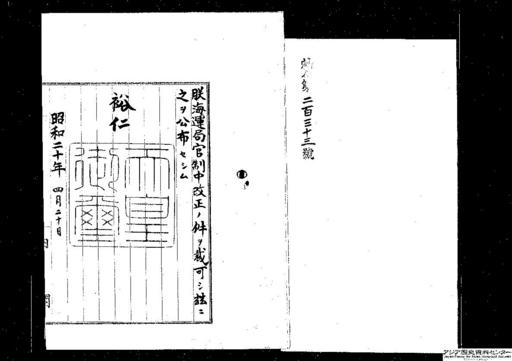 勅令第二百三十三號
朕海運局官制中改正ノ件ヲ裁可シ玆ニ
之ヲ公布セシム
裕仁
天皇
御璽
昭和二十年四月二十日
内閣
アジア歴史資料センター
Japan Center for Asian Historical Records